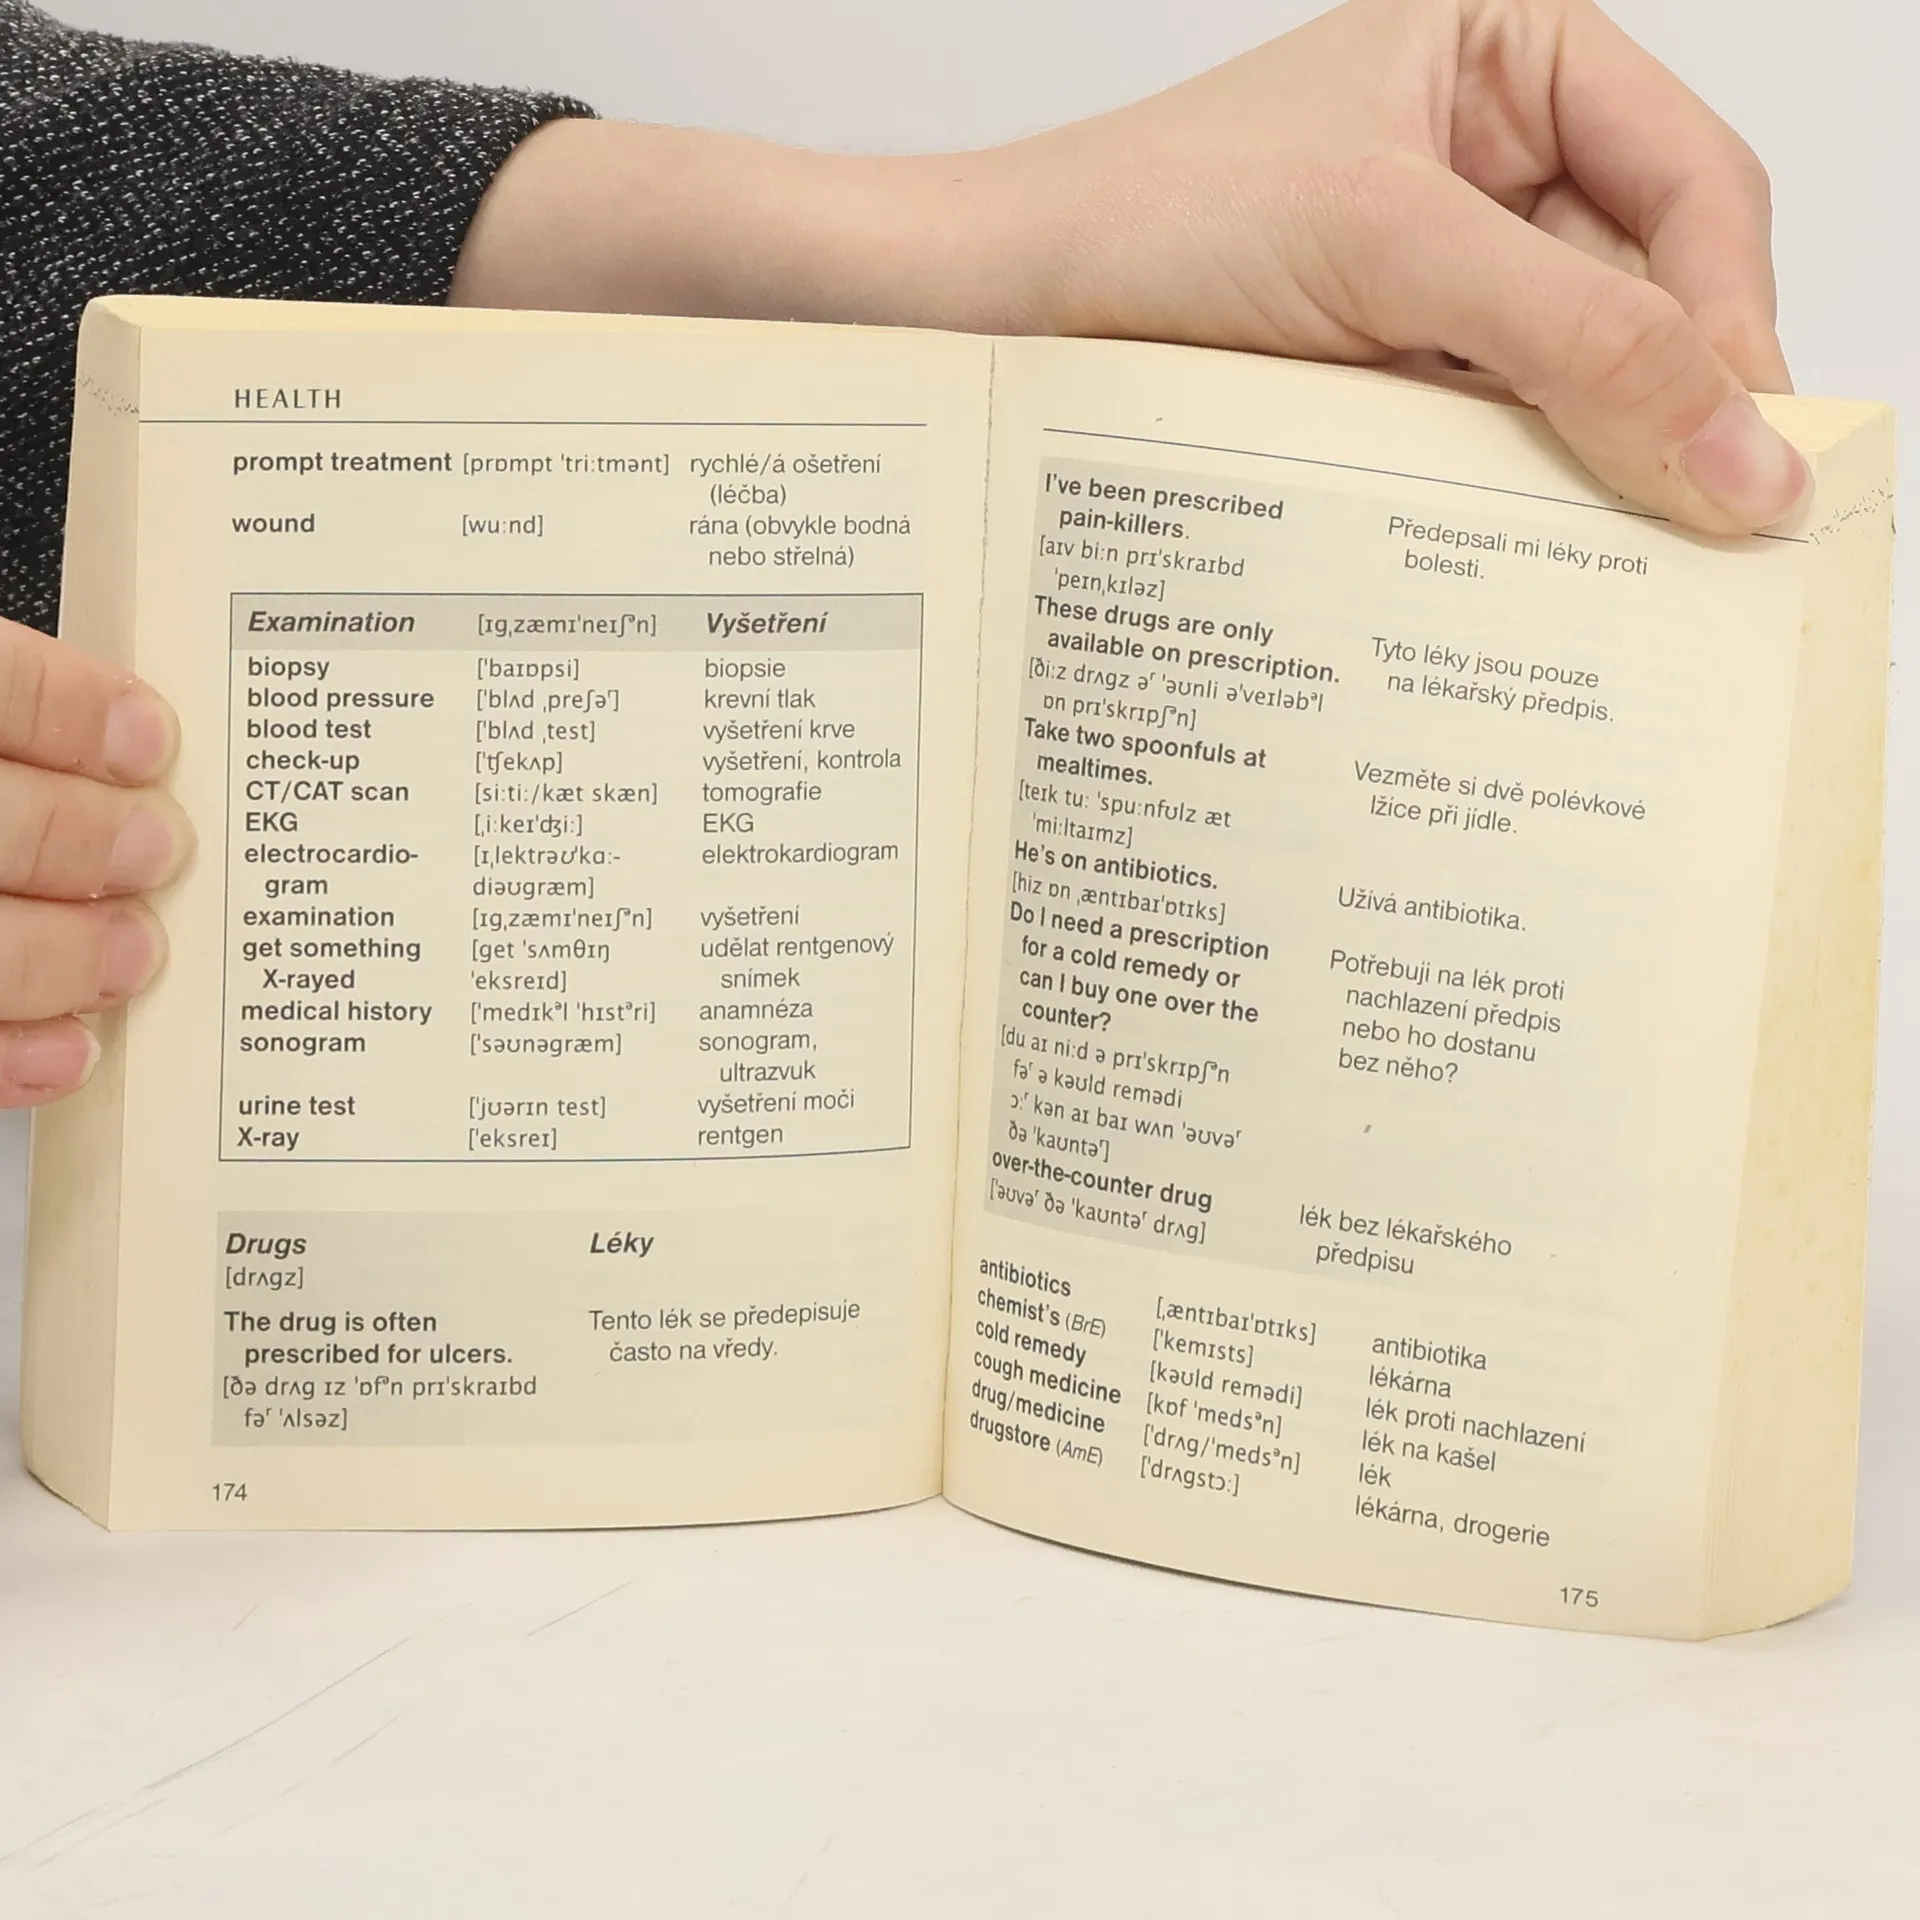 HEALTH
prompt treatment [prɒmpt 'triːtmənt] rychlé/á ošetření
(léčba)
wound [wuːnd] rána (obvykle bodná
nebo střelná)
Examination [ɪgˌzæmɪ'neɪʃᵊn] Vyšetření
biopsy ['baɪɒpsi] biopsie
blood pressure ['blʌd ˌpreʃəʳ] krevní tlak
blood test ['blʌd ˌtest] vyšetření krve
check-up ['tʃekʌp] vyšetření, kontrola
CT/CAT scan [siːtiː/kæt skæn] tomografie
EKG [ˌiːkeɪ'dʒiː] EKG
electrocardio- [ɪˌlektrəʊ'kɑː- elektrokardiogram
gram diəʊgræm]
examination [ɪgˌzæmɪ'neɪʃᵊn] vyšetření
get something [get 'sʌmθɪŋ udělat rentgenový
X-rayed 'eksreɪd] snímek
medical history ['medɪkᵊl 'hɪstᵊri] anamnéza
sonogram ['səʊnəgræm] sonogram,
ultrazvuk
urine test ['jʊərɪn test] vyšetření moči
X-ray ['eksreɪ] rentgen
Drugs Léky
[drʌgz]
The drug is often Tento lék se předepisuje
prescribed for ulcers. často na vředy.
[ðə drʌg ɪz 'ɒfᵊn prɪ'skraɪbd
fəʳ 'ʌlsəz]
174
I've been prescribed Předepsali mi léky proti
pain-killers. bolesti.
[aɪv biːn prɪ'skraɪbd
'peɪnˌkɪləz]
These drugs are only Tyto léky jsou pouze
available on prescription. na lékařský předpis.
[ðiːz drʌgz əʳ 'əʊnli ə'veɪləbᵊl
ɒn prɪ'skrɪpʃᵊn]
Take two spoonfuls at Vezměte si dvě polévkové
mealtimes. lžíce při jídle.
[teɪk tuː 'spuːnfʊlz æt
'miːltaɪmz]
He's on antibiotics. Užívá antibiotika.
[hiz ɒn ˌæntɪbaɪ'ɒtɪks]
Do I need a prescription Potřebuji na lék proti
for a cold remedy or nachlazení předpis
can I buy one over the nebo ho dostanu
counter? bez něho?
[du aɪ niːd ə prɪ'skrɪpʃᵊn
fəʳ ə kəʊld remədi
ɔːʳ kən aɪ baɪ wʌn 'əʊvəʳ
ðə 'kaʊntəʳ]
over-the-counter drug lék bez lékařského
['əʊvəʳ ðə 'kaʊntəʳ drʌg] předpisu
antibiotics [ˌæntɪbaɪ'ɒtɪks] antibiotika
chemist's (BrE) ['kemɪsts] lékárna
cold remedy [kəʊld remədi] lék proti nachlazení
cough medicine [kɒf 'medsᵊn] lék na kašel
drug/medicine ['drʌg/'medsᵊn] lék
drugstore (AmE) ['drʌgstɔː] lékárna, drogerie
175